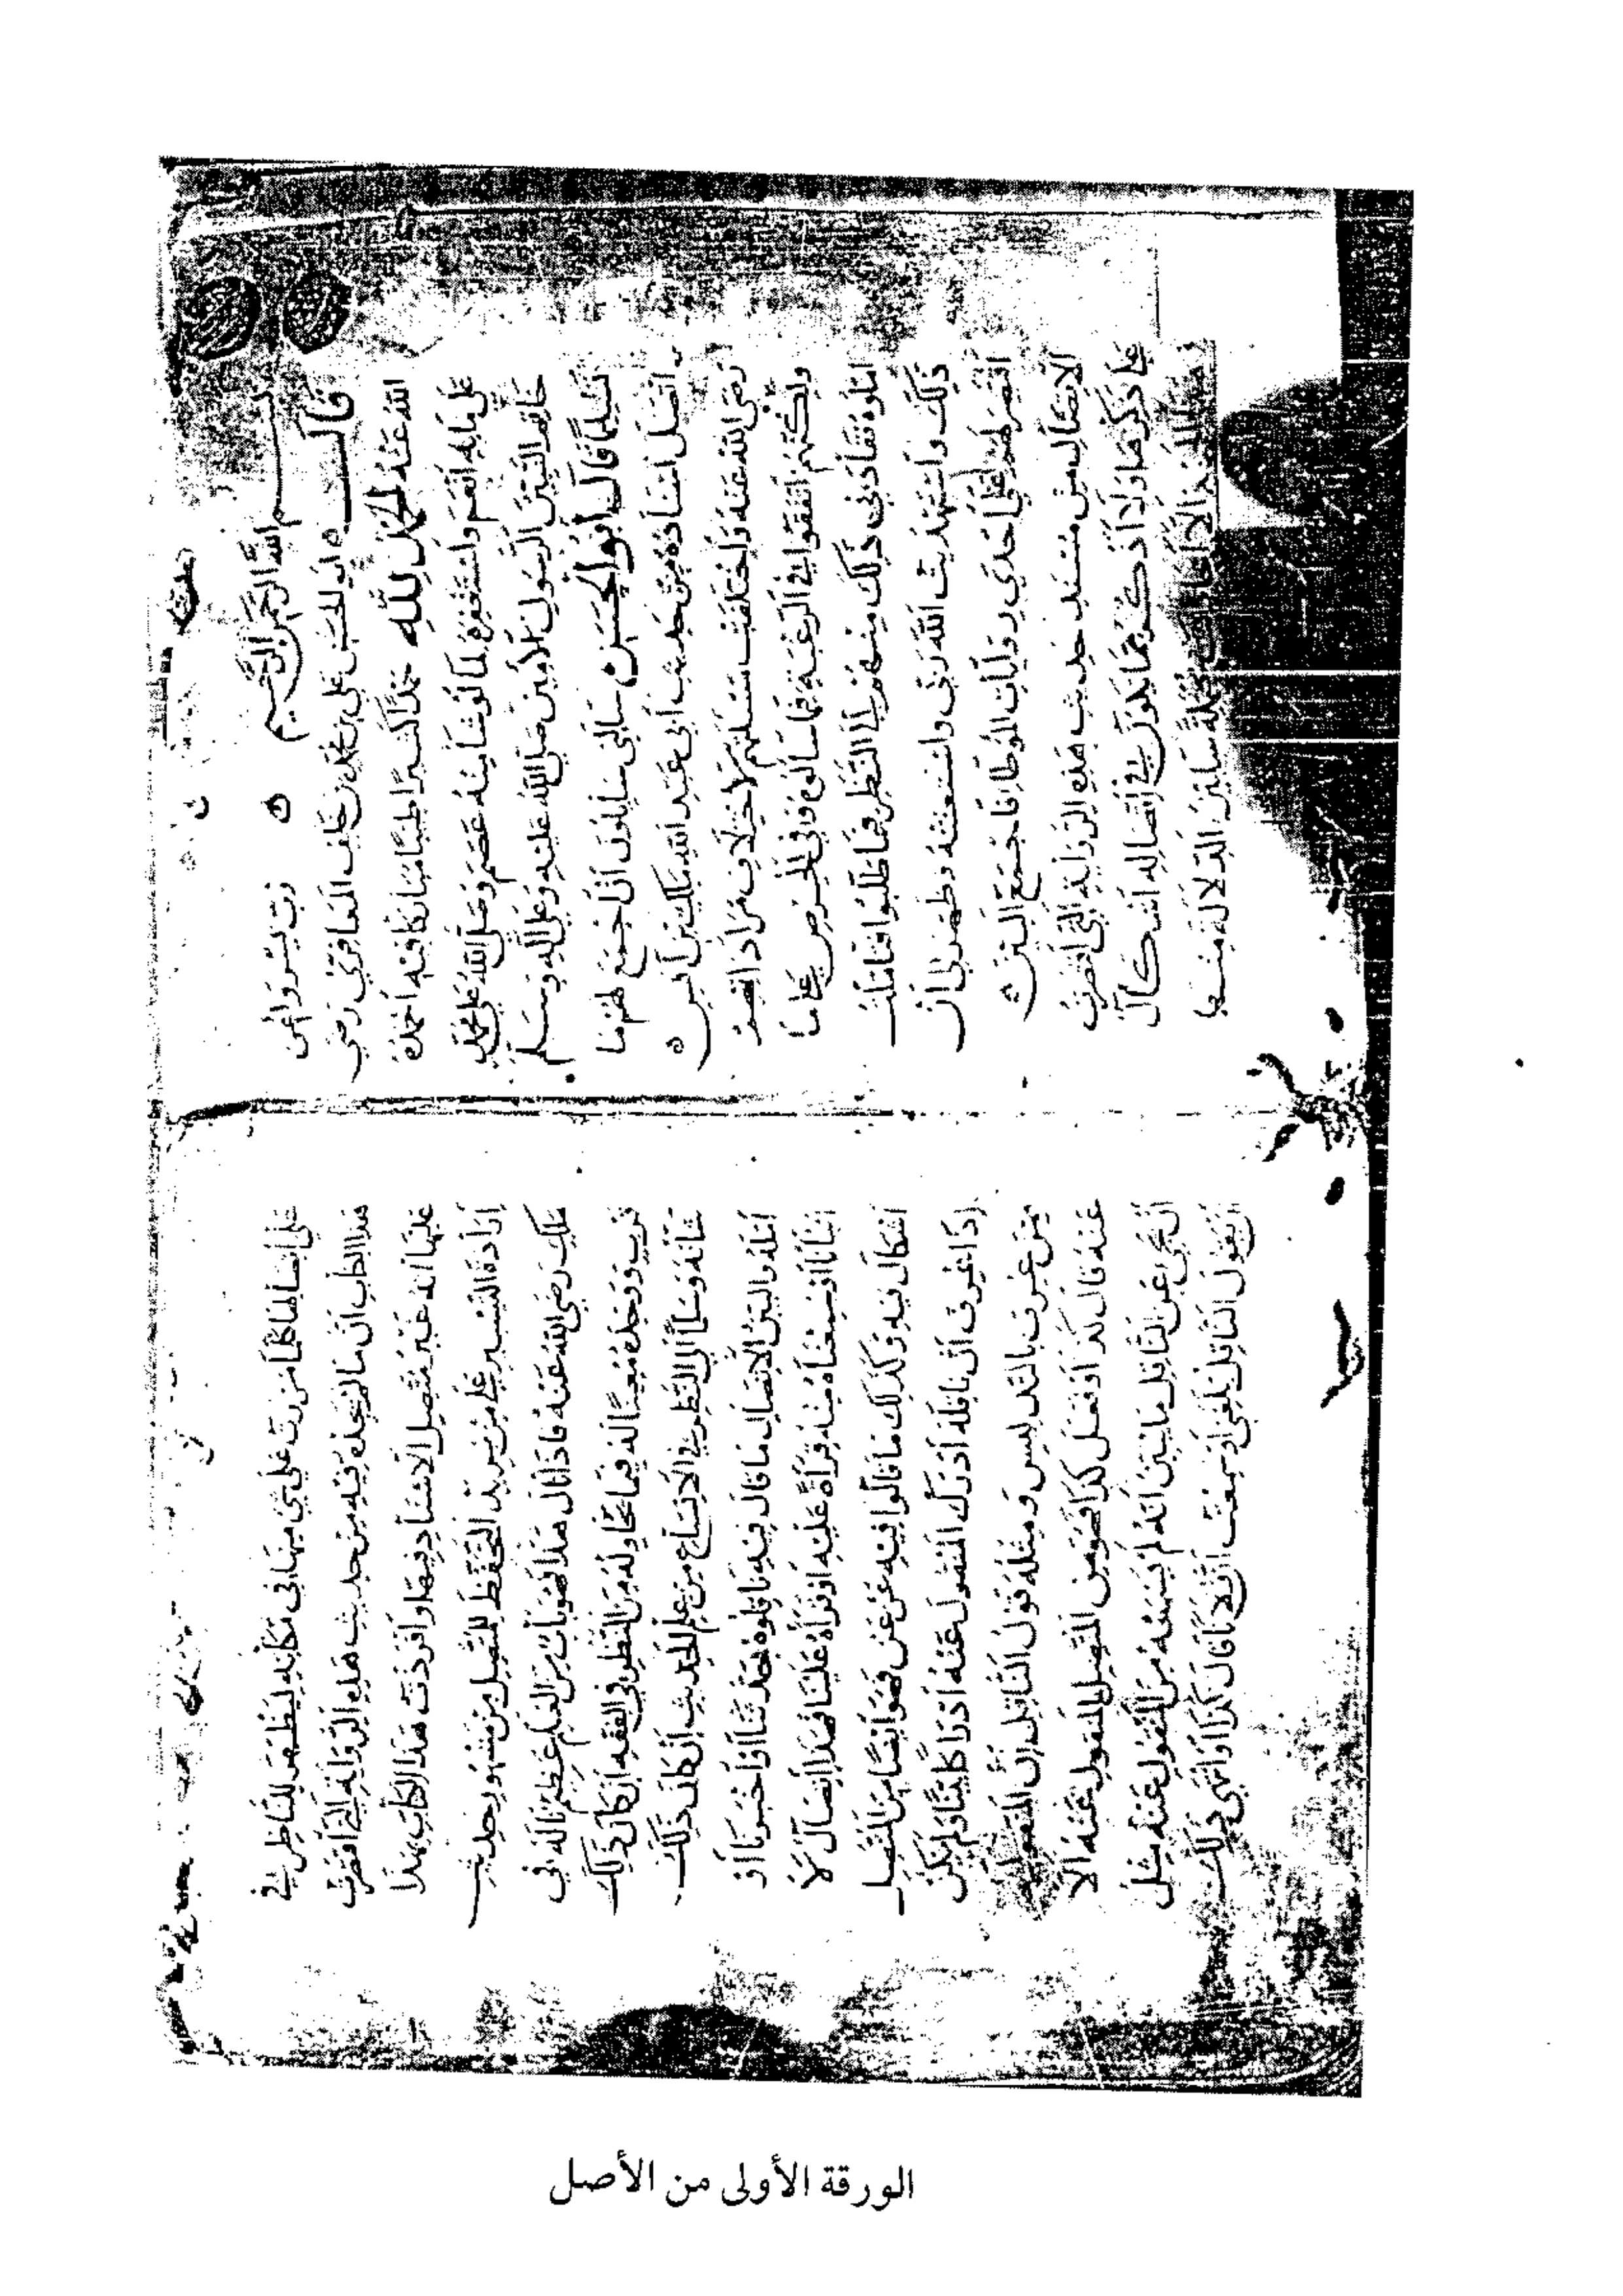 بسم الله الرحمن الرحيم رب يسر وأعن
قال أبو الحسن علي بن محمد بن خلف المعافري رضي
الله عنه الحمد لله حمدا كثيرا طيبا مباركا فيه أحمده
على ما به أنعم وأستغفره لما نوشا منه عصم وصلى الله على محمد
خاتم النبيين الرسول الأمين صلى الله عليه وعلى آله وسلم
تسليما قال أبو الحسن سألني سايلون أن أجمع لهم ما
اتصل إسناده من حديث أبي عبد الله ملك بن أنس
رضي الله عنه واختلفت مسئلتهم لاختلاف مرادهم
ولكنهم اتفقوا في الرغبة فيما سألوني وفي الحرص على ما
أملوه تقاربني ذلك منهم إلى النظر فيما طلبوا فتأملت
ذلك واستهديت الله ربي واستعنته وظهر لي أن
أقتصر لهم على إحدى روايات الموطا فأجمع البين
الاتصال من مسند حديث هذه الرواية التي أقتصرت
على ذكرها وإذا ذكر مما يكون في اتصاله إشكال
سايين الدلالة منها
على إيصالها كلما مررت على شي منها في مكانه ليظهر للناظر في
هذا الكتاب أن ما لم يجده فيه من حديث هذه الرواية التي أقتصرت
عليها أنه غير متصل الإسناد فيها وأفردت هذا الكتاب بهذا
إرادة التيسير على من يريد التحفظ للمتصل من مشهور حديث
ملك رضي الله عنه فإذا نال هذا فهو باب من العلم عظيم ناله في
قرب ووجده معينا له فيما يحاوله من النظر في الفقه إن كان ذلك
شأنه وسلما إلى النظر في الاتساع من علم الحديث إن كان ذلك
أمله والبين الاتصال ما قال فيه ناقلوه حدثنا أو أخبرنا أو
أنبأنا أو سمعناه منه قراة عليه أو قرأه علينا فهذا اتصال لا
إشكال فيه وكذلك ما قالوا فيه عن عن فهو أيضا من المتصل
إذا عرف أن ناقله أدرك المنقول عنه إدراكا بينا ولم يكن
ممن عرف بالتدليس ومثله قول الناقل إن المنقول
عنه قال كذا أو فعل كذا فهو من المتصل للمنقول عنه إلا
أن يجي عن الناقل ما يبين أنه لم يسمعه من المنقول عنه مثل
أن يقول الناقل بلغني أو سمعت أن فلانا قال كذا وأتى ذلك
الورقة الأولى من الأصل